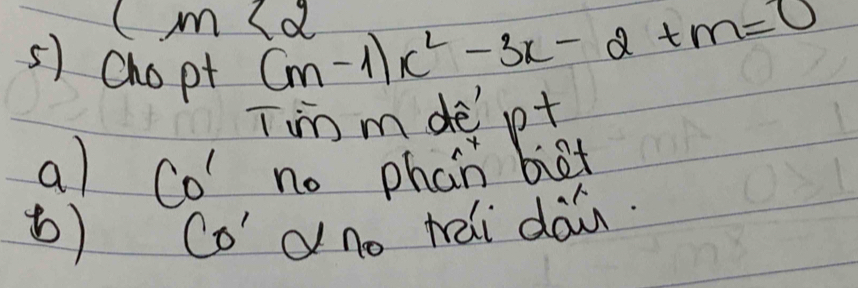 ( m < 2
5) Cho pt (m-1)x² - 3x - 2 + m = 0
Tìm m để pt
a) Có no phân biệt
b) Có 2 no trái dấu.